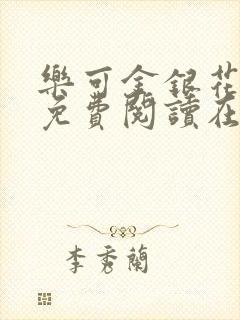 樂可金銀花
免費閱讀在
李秀蘭